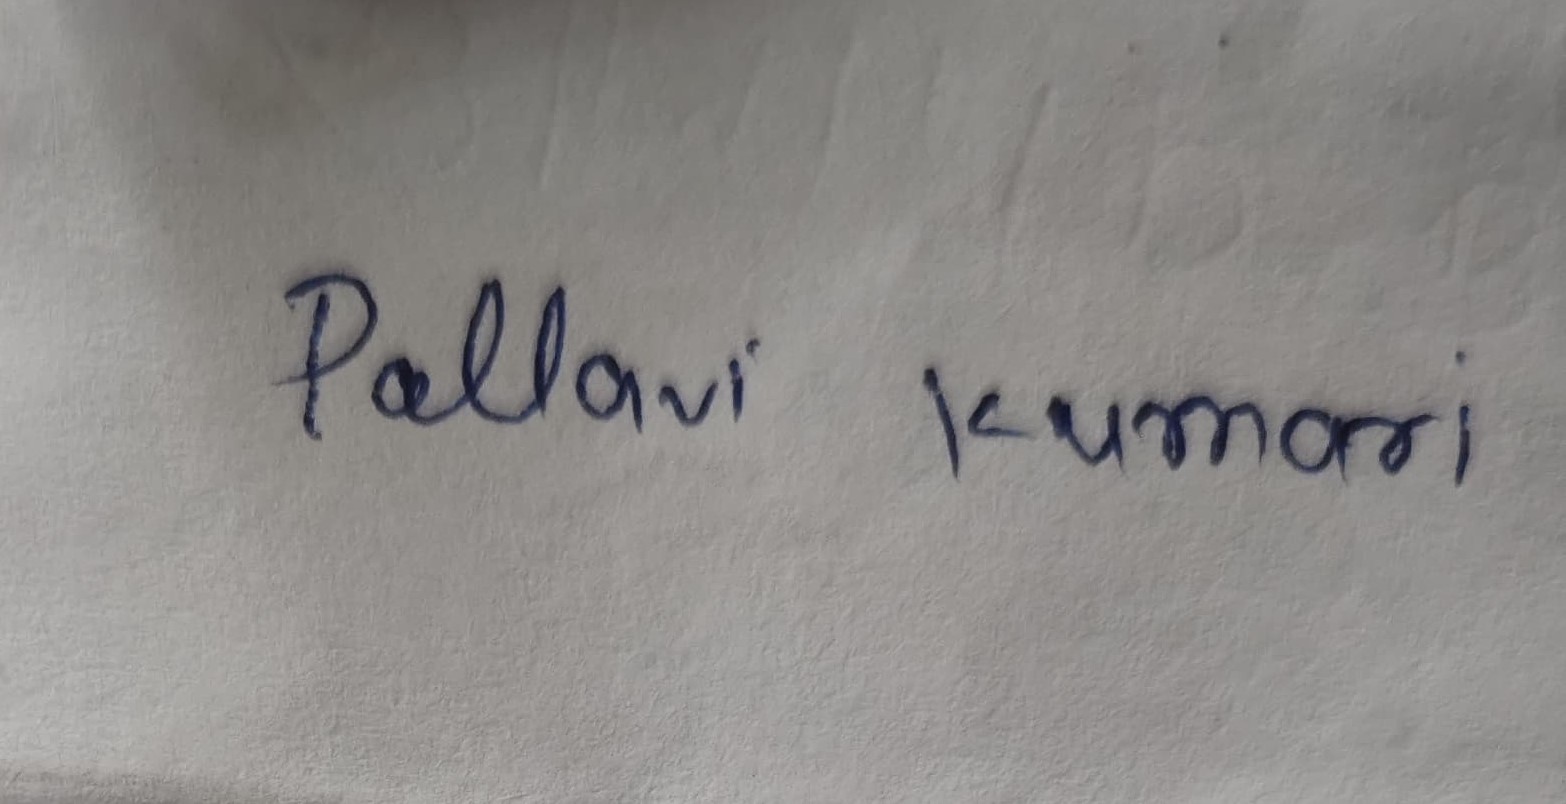 Pallavi kumari